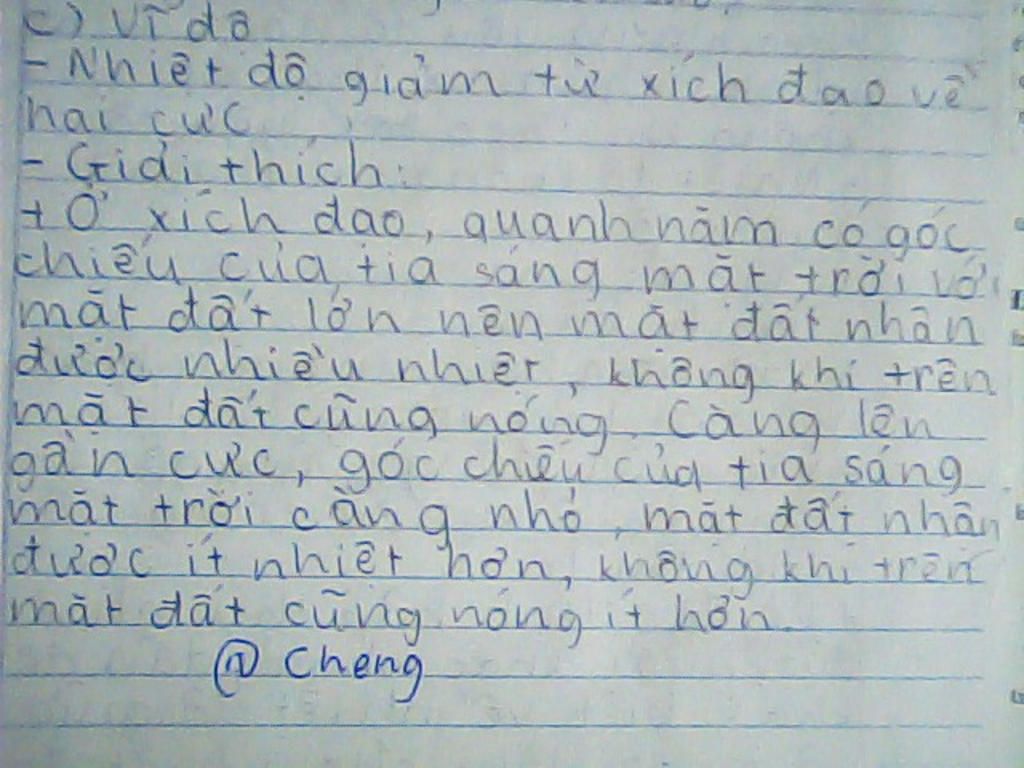 c) Vĩ độ
- Nhiệt độ giảm từ xích đạo về
hai cực
- Giải thích:
+ Ở xích đạo, quanh năm có góc
chiếu của tia sáng mặt trời với
mặt đất lớn nên mặt đất nhận
được nhiều nhiệt, không khí trên
mặt đất cũng nóng. Càng lên
gần cực, góc chiếu của tia sáng
mặt trời càng nhỏ, mặt đất nhận
được ít nhiệt hơn, không khí trên
mặt đất cũng nóng ít hơn.
@ Cheng